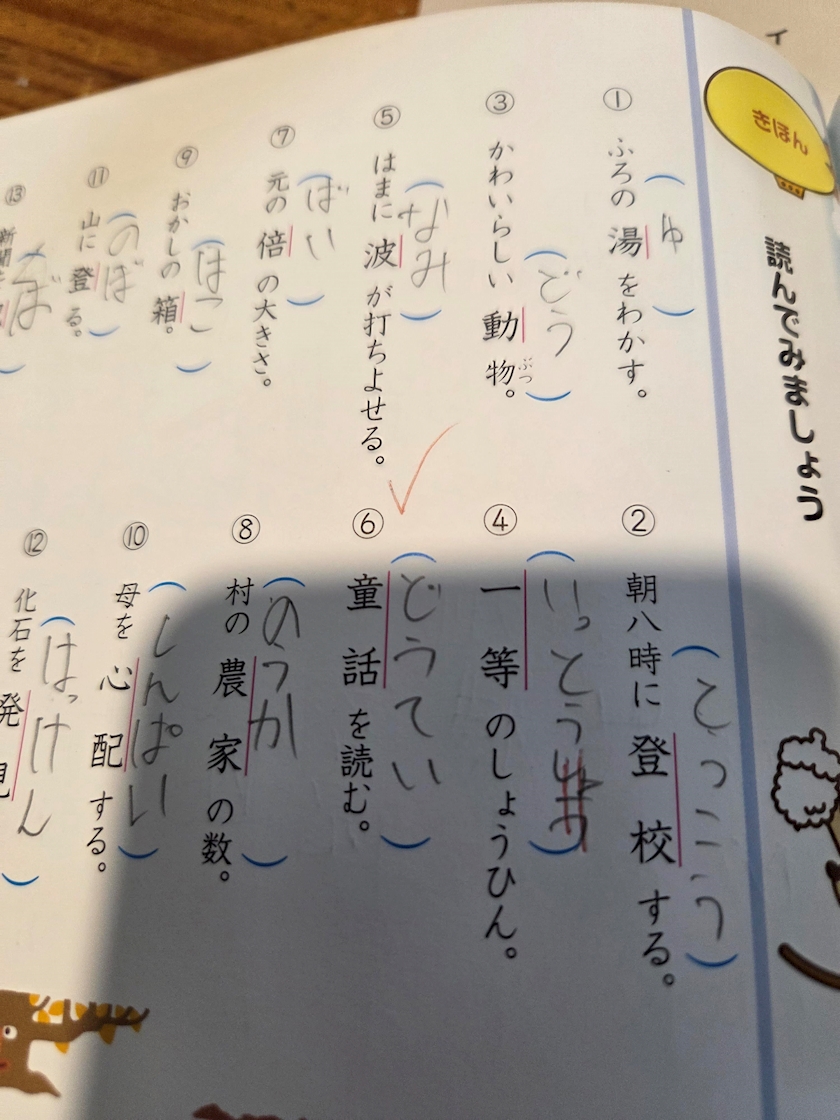 イ
きほん
読んでみましょう
① ふろの湯をわかす。
ゆ
② 朝八時に登校する。
とっこう
③ かわいらしい動物。
どう
ぶつ
④ 一等のしょうひん。
いっとう
⑤ はまに波が打ちよせる。
なみ
⑥ 童話を読む。
どうてい
⑦ 元の倍の大きさ。
ばい
⑧ 村の農家の数。
のうか
⑨ おかしの箱。
はこ
⑩ 母を心配する。
しんぱい
⑪ 山に登る。
のぼ
⑫ 化石を発見
はっけん
⑬ 新聞を